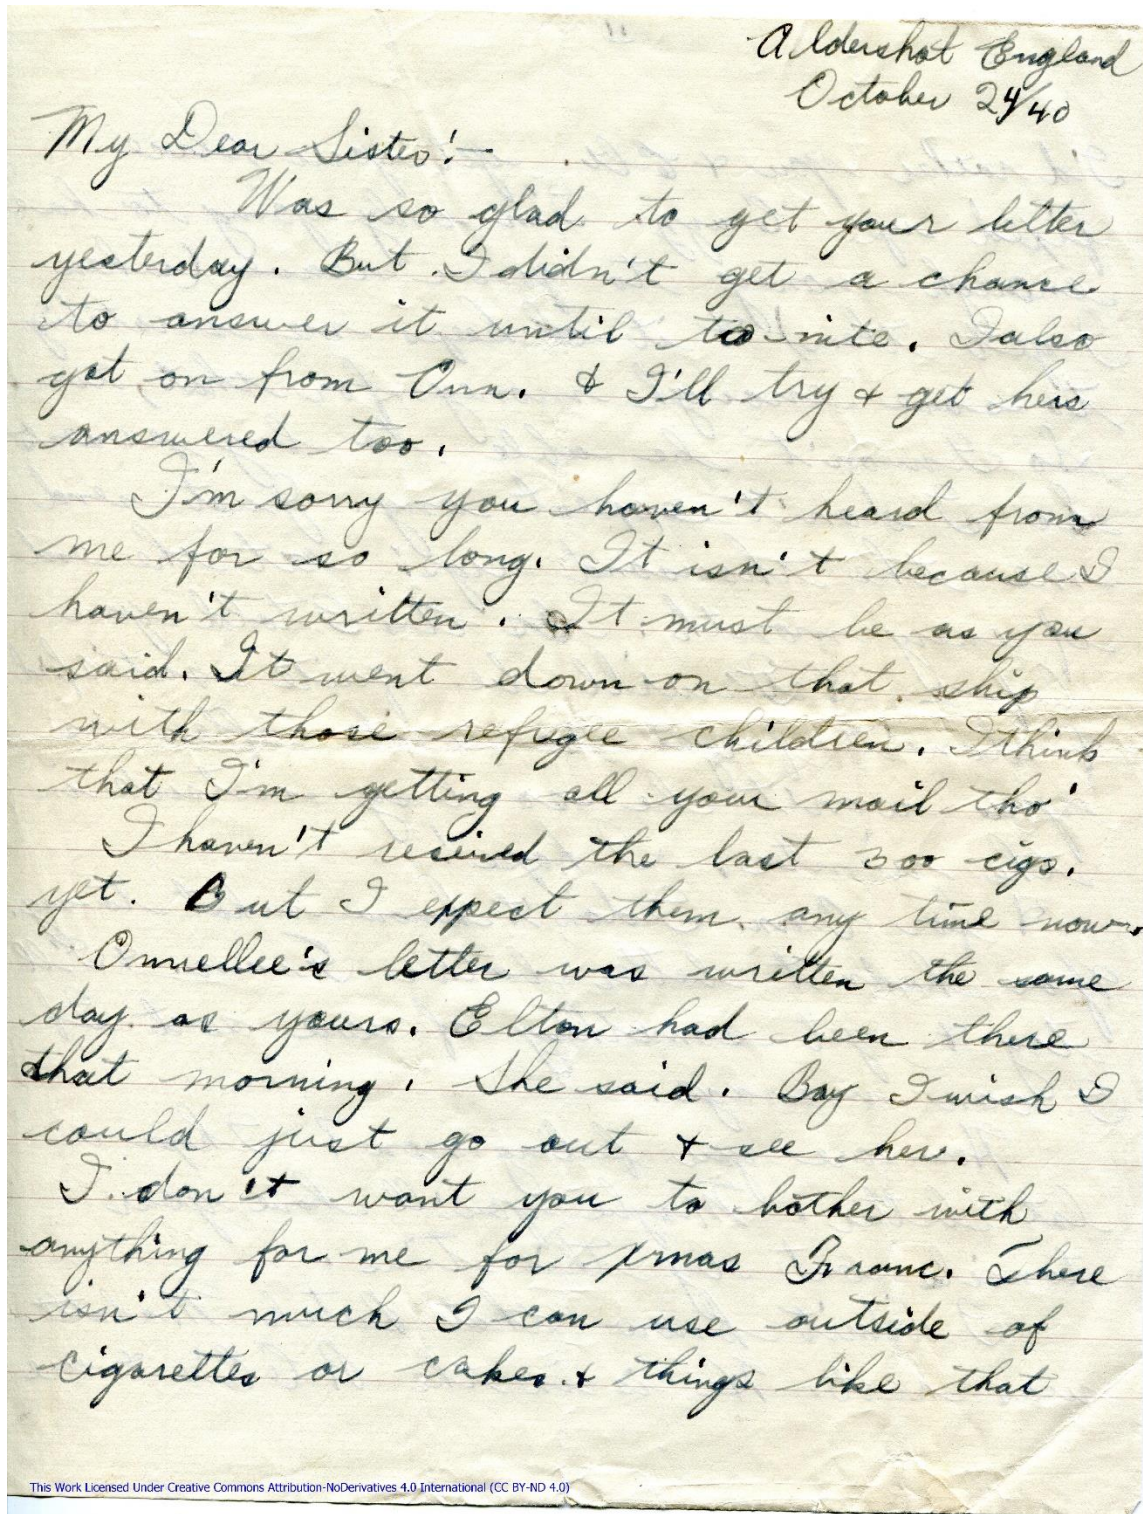 Aldershot England
October 24/40
My Dear Sister:-
Was so glad to get your letter
yesterday. But I didn't get a chance
to answer it until to-nite. I also
got on from Ann. & I'll try & get hers
answered too.
I'm sorry you haven't heard from
me for so long. It isn't because I
haven't written. It must be as you
said. It went down on that ship
with those refugee children. I think
that I'm getting all your mail tho'
I haven't reseived the last 300 cigs.
yet. But I expect them any time now.
letter was written the same
day as yours. Elton had been there
that morning. She said. Boy I wish I
could just go out & see her.
I don't want you to bother with
anything for me for Xmas Franc. There
isn't much I can use outside of
cigarettes or cakes & things like that
This Work Licensed Under Creative Commons Attribution-NoDerivatives 4.0 International (CC BY-ND 4.0)